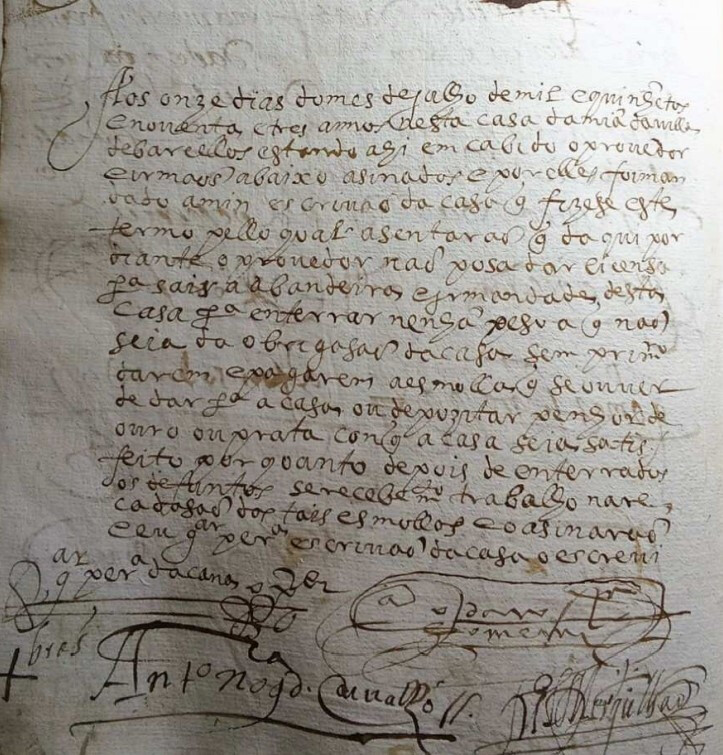 Aos onze dias do mes de julho de mil e quinhẽtos
e noventa e tres annos nesta casa da miã da villa
de barcellos estando ahi em cabido o provedor
e irmaos abaixo asinados e por elles foi man
dado a min escrivão da casa q̃ fizese este
termo pello qual asentarão q̃ da qui por
diante o provedor não posa dar licensa
pª sair a bandeira e irmandade desta
casa pª enterrar nenhũa pesoa q̃ não
seia da obrigasão da casa sem primro
darem e pagarem a esmolla q̃ se ouver
de dar pª a casa ou depozitar penhor de
ouro ou prata con q̃ a casa seia satis
feito por quanto depois de enterrados
os defuntos se recebe mto trabalho na re
cadasão dos tais esmollos e o asinarão
e eu gar perª escrivão da casa o escrevi
gar perª da cana
Antº Carvalho